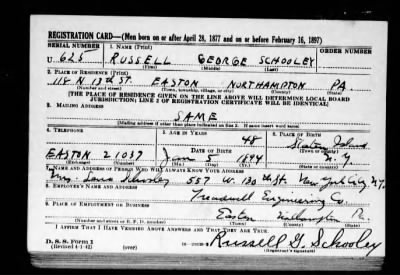 REGISTRATION CARD—(Men born on or after April 28, 1877 and on or before February 16, 1897)
SERIAL NUMBER 1. NAME (Print) ORDER NUMBER
U 625 RUSSELL GEORGE SCHOOLEY
(First) (Middle) (Last)
2. PLACE OF RESIDENCE (Print)
118 N 13th ST. EASTON NORTHAMPTON PA.
(Number and street) (Town, township, village, or city) (County) (State)
[THE PLACE OF RESIDENCE GIVEN ON THE LINE ABOVE WILL DETERMINE LOCAL BOARD
JURISDICTION; LINE 2 OF REGISTRATION CERTIFICATE WILL BE IDENTICAL]
3. MAILING ADDRESS
SAME
[Mailing address if other than place indicated on line 2. If same insert word same]
4. TELEPHONE 5. AGE IN YEARS 6. PLACE OF BIRTH
48 Staten Island
DATE OF BIRTH (Town or county)
EASTON 2 1037 Jan 5 1894 N.Y.
(Exchange) (Number) (Mo.) (Day) (Yr.) (State or country)
7. NAME AND ADDRESS OF PERSON WHO WILL ALWAYS KNOW YOUR ADDRESS
Mrs. Schooley 557 W. 130th St. New York City N.Y.
8. EMPLOYER'S NAME AND ADDRESS
Treadwell Engineering Co.
9. PLACE OF EMPLOYMENT OR BUSINESS
Easton Northampton Pa.
(Number and street or R. F. D. number) (Town) (County) (State)
I AFFIRM THAT I HAVE VERIFIED ABOVE ANSWERS AND THAT THEY ARE TRUE.
D. S. S. Form 1
(Revised 4-1-42) (over) Russell G. Schooley